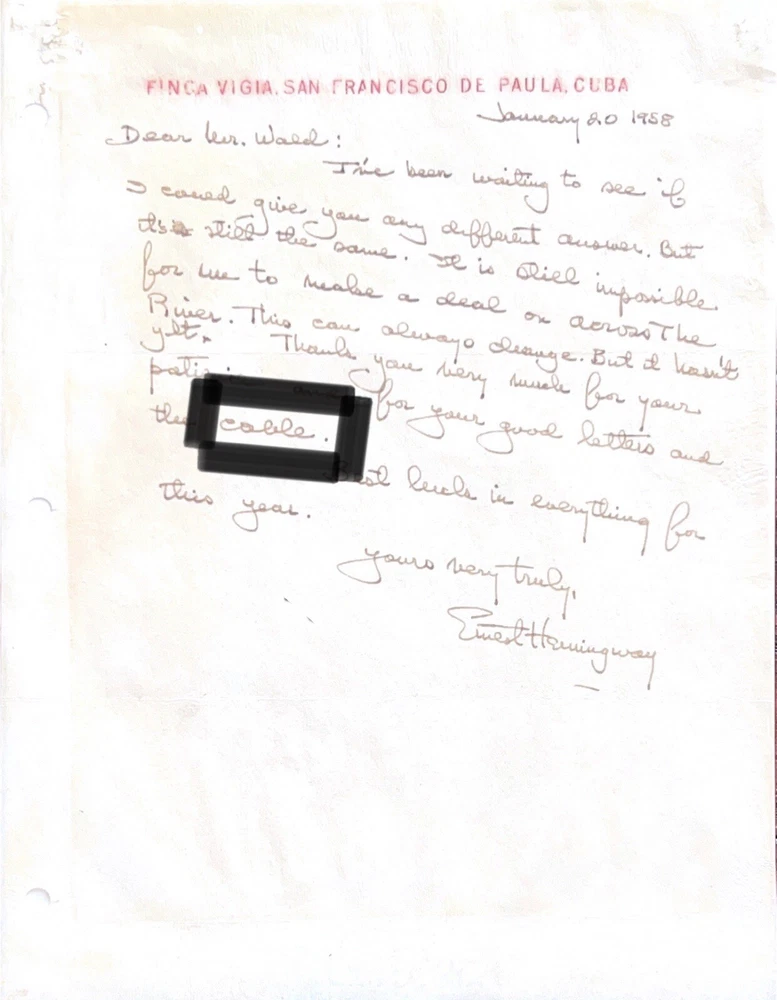 FINCA VIGIA, SAN FRANCISCO DE PAULA, CUBA
January 20 1958
Dear Mr. Wald:
I've been waiting to see if
I could give you any different answer. But
it is still the same. It is still impossible
for me to make a deal on across The
River. This can always change. But it hasn't
yet. Thank you very much for your
for your good letters and
the cable.
luck in everything for
this year.
Yours very truly,
Ernest Hemingway